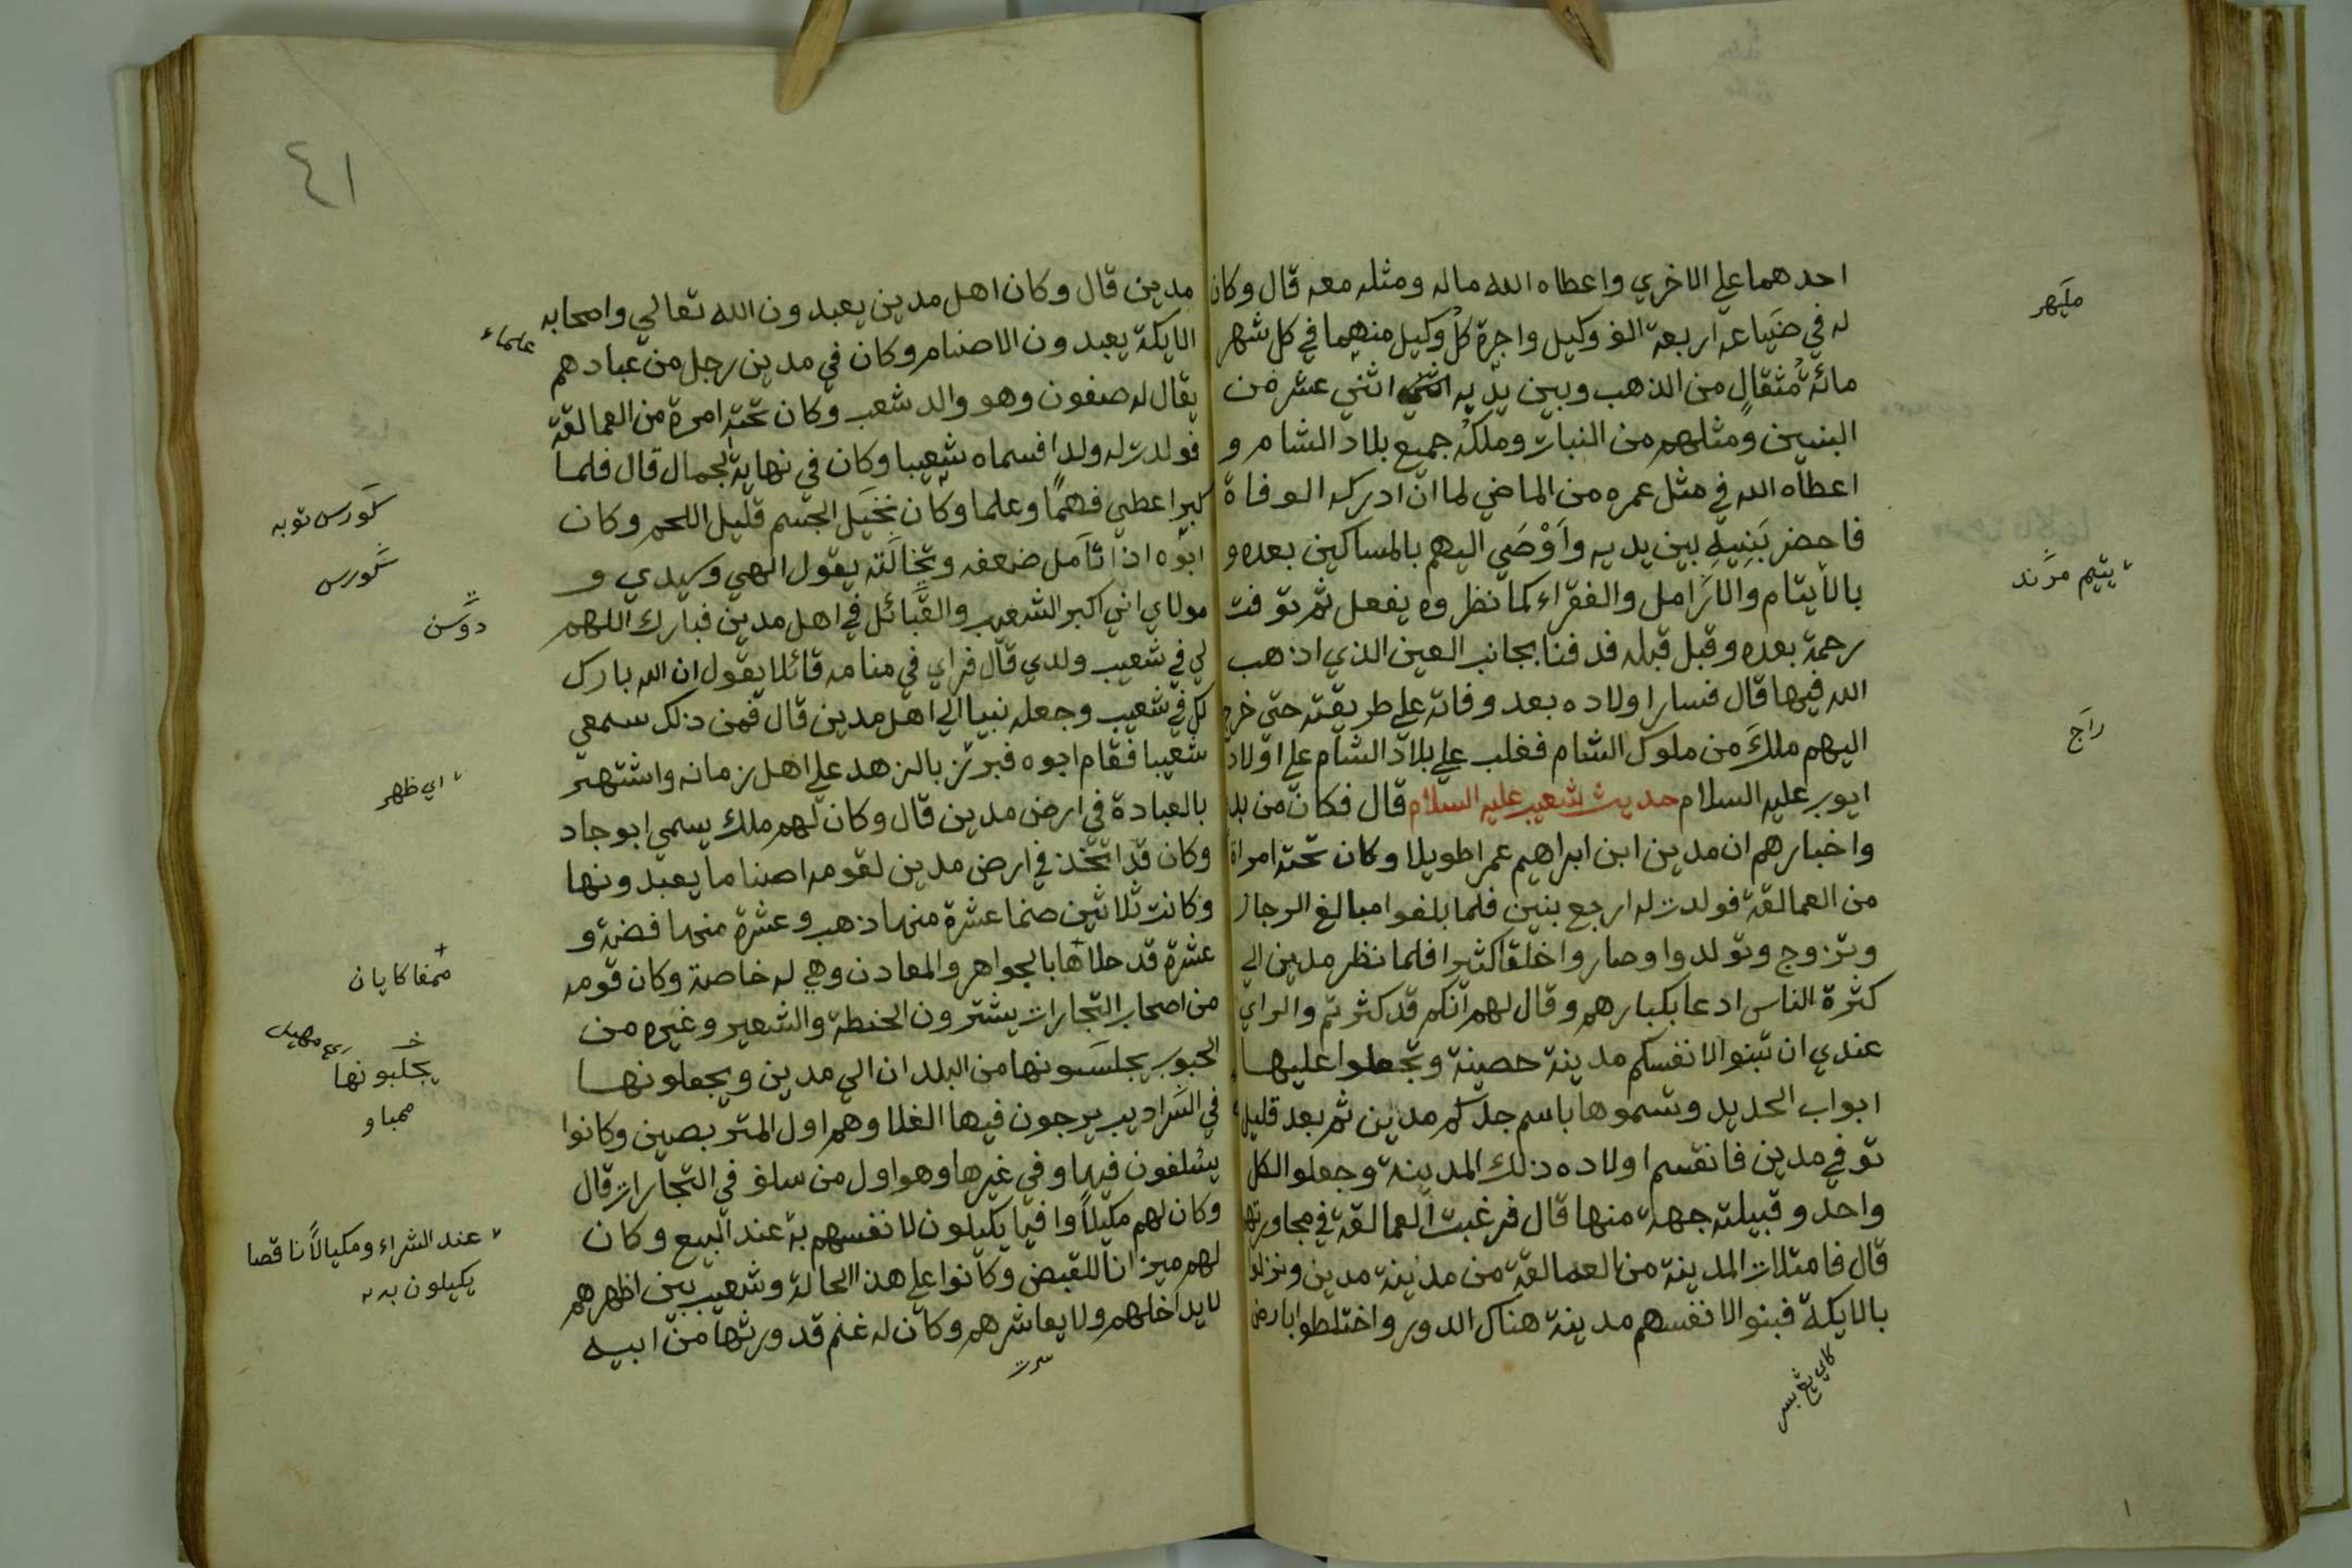 احدهما علي الاخري واعطاه الله ماله ومثله معه قال وكان
له في ضياعه اربعة الف وكيل واجرة كل وكيل منهما في كل شهر
مائة مثقال من الذهب وبين يديه اثني عشر من
البنين ومثلهم من النبات وملك جميع بلاد الشام و
اعطاه الله في مثل عمره من الماضي لما ان ادركه الوفاة
فاحضر بنيه بين يديه واوصي اليهم بالمساكين بعده و
بالايتام والارامل والفقراء كما نظروه يفعل ثم توفت
رحمة بعده وقبل قبله فدفنا بجانب العين الذي اذهب
الله فيها قال فسار اولاده بعد وفاته علي طريقته حتي خرج
اليهم ملك من ملوك الشام فغلب علي بلاد الشام علي اولاد
ايوب عليه السلام حديث شعيب عليه السلام قال فكان من
واخبارهم ان مدين ابن ابراهيم عمرا طويلا وكان تحته امراة
من العمالقة فولدت له اربع بنين فلما بلغوا مبالغ الرجال
وتزوج وتولدوا وصاروا خلقا كثيرا فلما نظر مدين الي
كثرة الناس ادعا بكبارهم وقال لهم انكم قد كثرتم والراي
عندي ان تبنوا لانفسكم مدينة حصينة وتجعلوا عليها
ابواب الحديد وتسموها باسم جدكم مدين ثم بعد قليل
توفي مدين فانقسم اولاده ذلك المدينة وجعلوا لكل
واحد وقبيلته جهة منها قال فرغبت العمالقة في مجاورتها
قال فامتلات المدينة من العمالقة من مدينة مدين ونزلو
بالايكة فبنوا لانفسهم مدينة هناك الدور واختلطوا بارض
مليهر
يتيم مرند
راج
كاي يڠ بسر
٤١
مدين قال وكان اهل مدين يعبدون الله تعالي واصحابه
الايكة يعبدون الاصنام وكان في مدين رجل من عبادهم
يقال له صنعون وهو والد شعب وكان تحته امرة من العمالقة
فولدت له ولدا فسماه شعيبا وكان في نهاية الجمال قال فلما
كبر اعطي فهما وعلما وكان نخيل الجسم قليل اللحم وكان
ابوه اذا تامل ضعفه ونخالته يقول الهي وسيدي و
مولاي اني اكبر الشعوب والقبائل في اهل مدين فبارك اللهم
لي في شعيب ولدي قال فراي في منامه قائلا يقول ان الله بارك
لك في شعيب وجعله نبيا الي اهل مدين قال فمن ذلك سمعي
شعيبا فقام ابوه فبرز بالزهد علي اهل زمانه واشتهر
بالعبادة في ارض مدين قال وكان لهم ملك يسمي ابو جاد
وكان قد اتخذ في ارض مدين لقومه اصناما يعبدونها
وكانت ثلاثين صنما عشرة منها ذهب وعشرة منها فضة و
عشرة قد حلاها بالجواهر والمعادن وهي له خاصة وكان قومه
من اصحاب التجارات يشترون الحنطة والشعير وغيره من
الحبوب يجلسونها من البلدان الي مدين ويجعلونها
في السراديب يرجون فيها الغلا وهم اول المتربصين وكانوا
يسلفون فيها وفي غيرها وهو اول من سلف في التجارات قال
وكان لهم مكيلا وافيا يكيلون لانفسهم به عند البيع وكان
لهم ميزانا للقبض وكانوا علي هذا الحالة وشعيب بين اظهرهم
لا يداخلهم ولا يعاشرهم وكان له غنم قد ورثها من ابيه
علماء
كورس توبه
كورس
دوسن
اي ظهر
ممفاكايان
يجلبونها
ممباو
عند الشراء ومكيالا ناقصا
يكيلون به